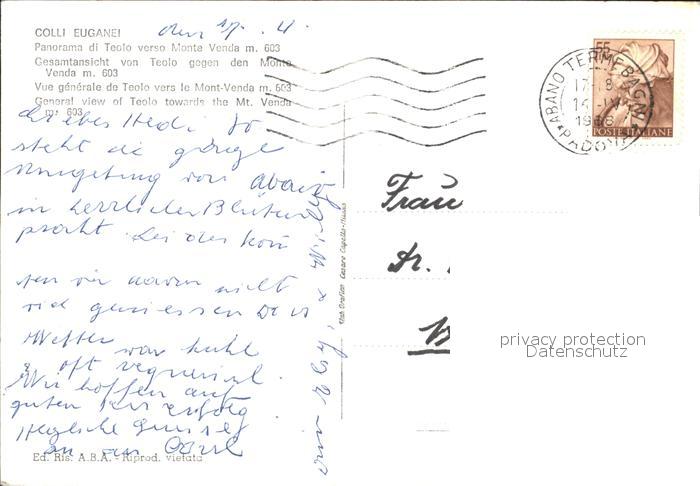 COLLI EUGANEI
Panorama di Teolo verso Monte Venda m. 603
Gesamtansicht von Teolo gegen den Monte
Venda m. 603
Vue générale de Teolo vers le Mont-Venda m. 603
General view of Teolo towards the Mt. Venda
m. 603
den 17. 4.
Liebes Hedi! So
steht die ganze
Umgebung von Abano
in herrlicher Blüten
pracht. Leider kön
nen wir davon nicht
viel geniessen Das
Wetter war kühl
oft regnerisch.
Wir hoffen auf
guten Kurerfolg
Herzliche Grüsse
an
Ed. Ris. A.B.A. - Riprod. vietata
55
POSTE ITALIANE
ABANO TERME BAGNI
17-18
1968
* PADOVA
Frau
Dr.
privacy protection
Datenschutz